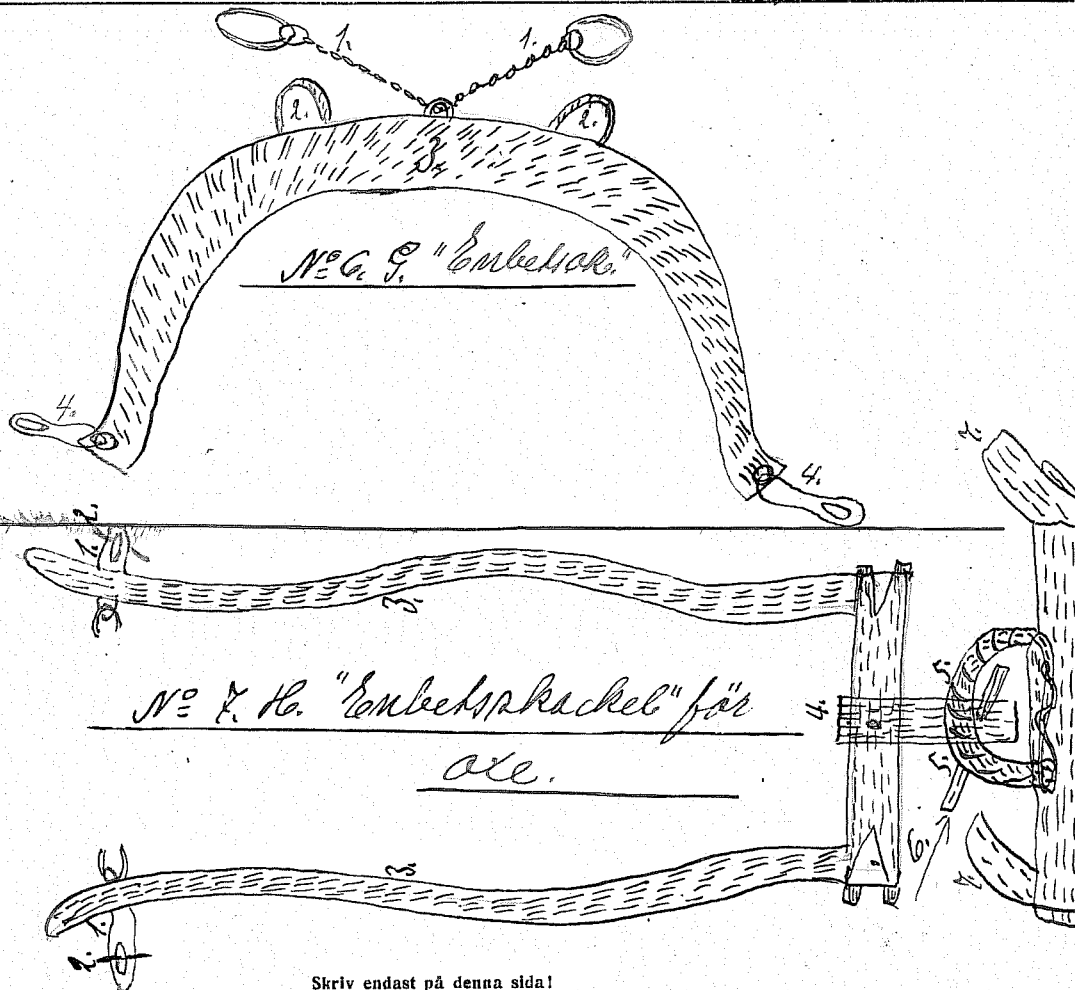 1. 1.
2. 2.
3.
Nº 6. G. "Enbetsok."
4. 4.
7.
1. 2.
3.
Nº 7. H. "Enbetsskackel" för
oxe.
4.
5.
5.
6.
3.
7.
1.
2.
Skriv endast på denna sida!